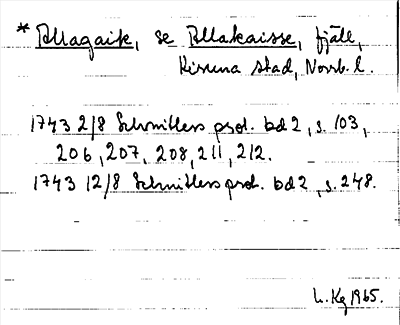 * Allagaik, se Allakaisse, fjäll,
Kiruna stad, Norrb. l.
1743 2/8 Schnitlers prot. bd 2, s. 103,
206, 207, 208, 211, 212.
1743 12/8 Schnitlers prot. bd 2, s. 248.
L. Kg 1965.